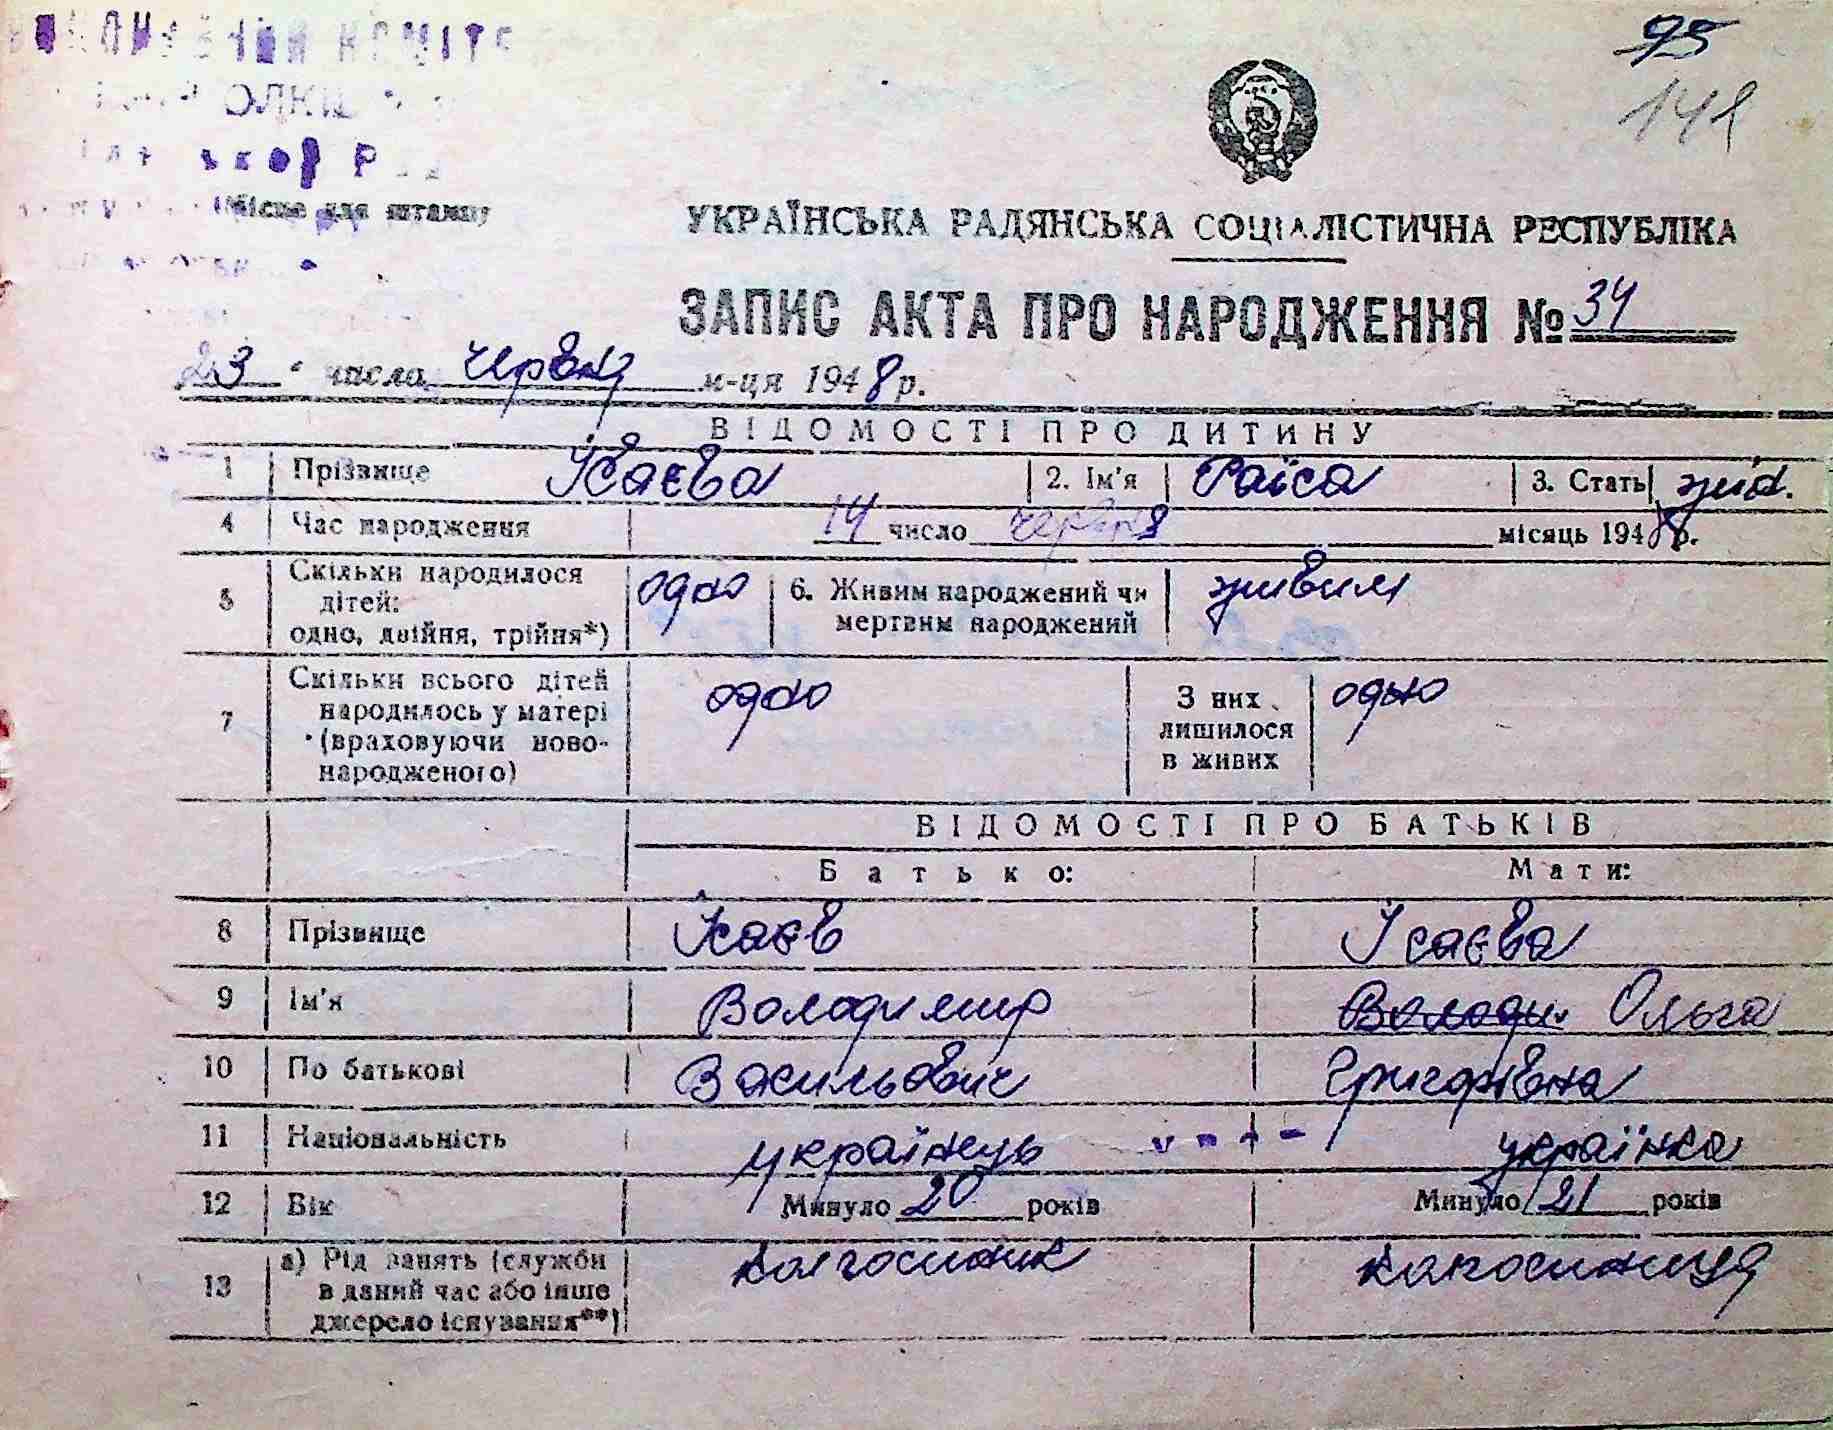 95
141
Місце для штампу
УКРАЇНСЬКА РАДЯНСЬКА СОЦІАЛІСТИЧНА РЕСПУБЛІКА
ЗАПИС АКТА ПРО НАРОДЖЕННЯ № 34
23 числа червня м-ця 1948 р.
ВІДОМОСТІ ПРО ДИТИНУ
1 Прізвище Ісаєва 2. Ім'я Раїса 3. Стать жін.
4 Час народження 14 число червня місяць 1948 р.
5 Скільки народилося дітей: одно, двійня, трійня*) одно 6. Живим народжений чи мертвим народжений живим
7 Скільки всього дітей народилось у матері (враховуючи новонародженого) одно З них лишилося в живих одно
ВІДОМОСТІ ПРО БАТЬКІВ
Батько: Мати:
8 Прізвище Ісаєв Ісаєва
9 Ім'я Володимир Володи Ольга
10 По батькові Васильович Григорівна
11 Національність українець українка
12 Вік Минуло 20 років Минуло 21 років
13 а) Рід занять (служби в даний час або інше джерело існування**) колгоспник колгоспниця